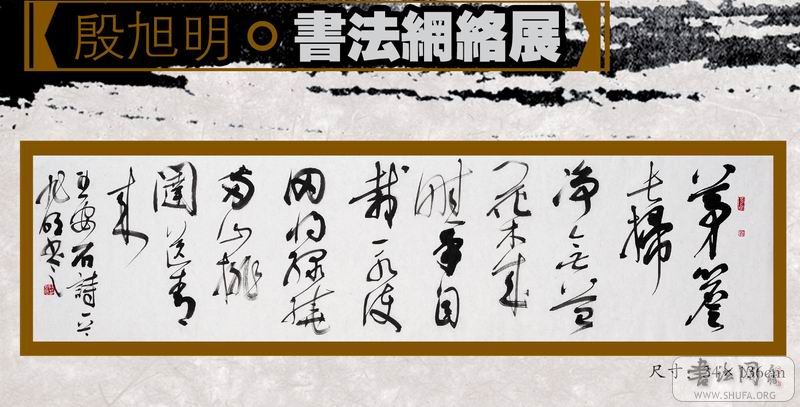 殷旭明
書法網絡展
茅簷
长掃
净無苔
花木成
畦手自
栽一水護
田將綠繞
兩山排
闥送青
來
王安石詩一首
旭明書
尺寸：34×136cm
書法网
WWW.SHUFA.ORG